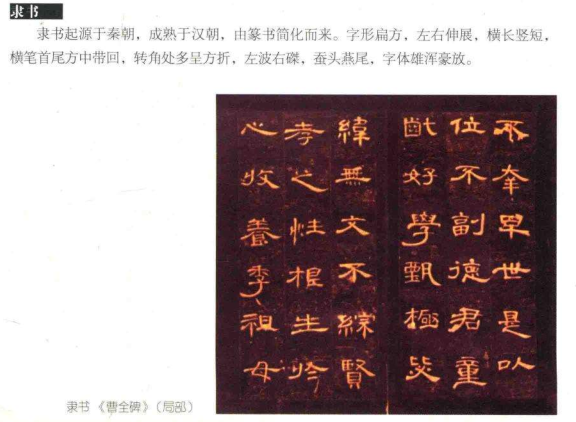 隶书
隶书起源于秦朝，成熟于汉朝，由篆书简化而来。字形扁方，左右伸展，横长竖短，
横笔首尾方中带回，转角处多呈方折，左波右磔，蚕头燕尾，字体雄浑豪放。
不幸早世是以
位不副德君童
齔好學甄極毖
緯無文不綜賢
孝之性根生於
心收養季祖母
隶书《曹全碑》（局部）